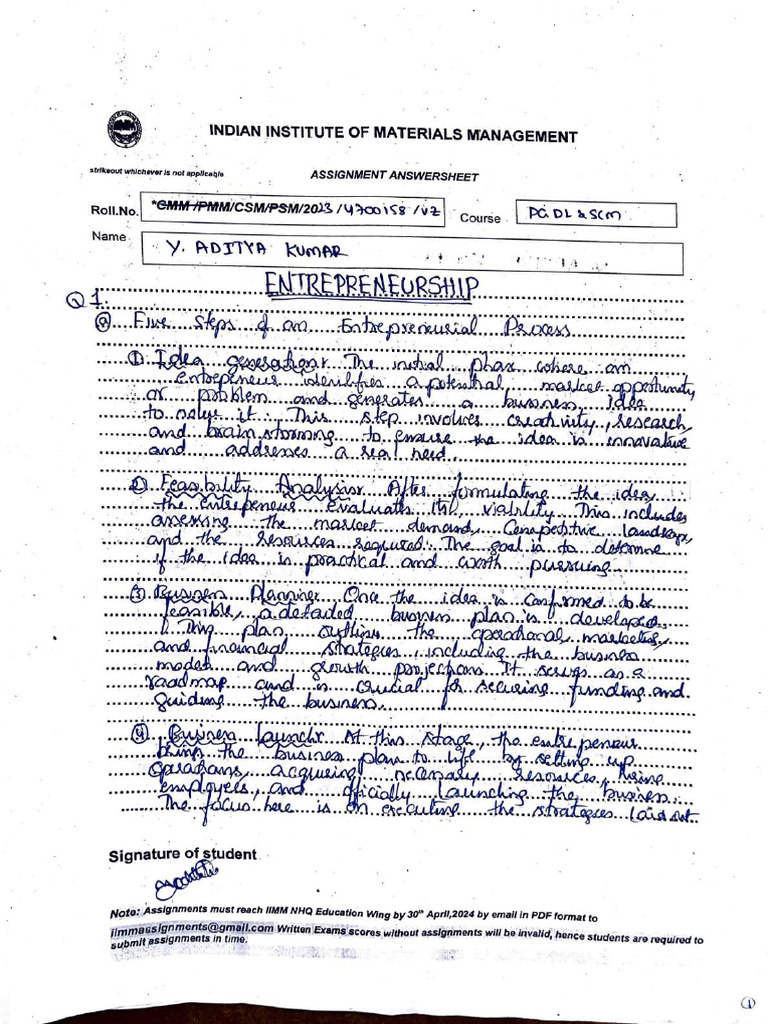 INDIAN INSTITUTE OF MATERIALS MANAGEMENT
strikeout whichever is not applicable
ASSIGNMENT ANSWERSHEET
Roll.No. *CMM /PMM/CSM/PSM/2023/4700158/VZ Course PGDL&SCM
Name Y. ADITYA KUMAR
ENTREPRENEURSHIP
Q1.
(a) Five steps of an Entrepreneurial Process
(1) Idea generation: The initial phase where an
entrepeneur identifies a potential market opportunity
or problem and generates a business idea
to solve it. This step involves creativity, research,
and brain storming to ensure the idea is innovative
and addresses a real need.
(2) Feasibility Analysis: After formulating the idea,
the entrepeneur evaluates its viability. This includes
assessing the market demand, Competitive landscape,
and the resources required. The goal is to determine
if the idea is practical and worth pursuing.
(3) Business Planning: Once the idea is confirmed to be
feasible, a detailed business plan is developed.
This plan outlines the operational, marketing,
and financial strategies, including the business
model and growth projections. It serves as a
roadmap and is crucial for securing funding and
guiding the business.
(4) Business Launch: At this stage, the entrepreneur
brings the business plan to life by setting up
operations, acquiring necessary resources, hiring
employees, and officially launching the business.
The focus here is on executing the strategies laid out
Signature of student
Note: Assignments must reach IIMM NHQ Education Wing by 30th April,2024 by email in PDF format to
iimmassignments@gmail.com Written Exams scores without assignments will be invalid, hence students are required to
submit assignments in time.
(1)